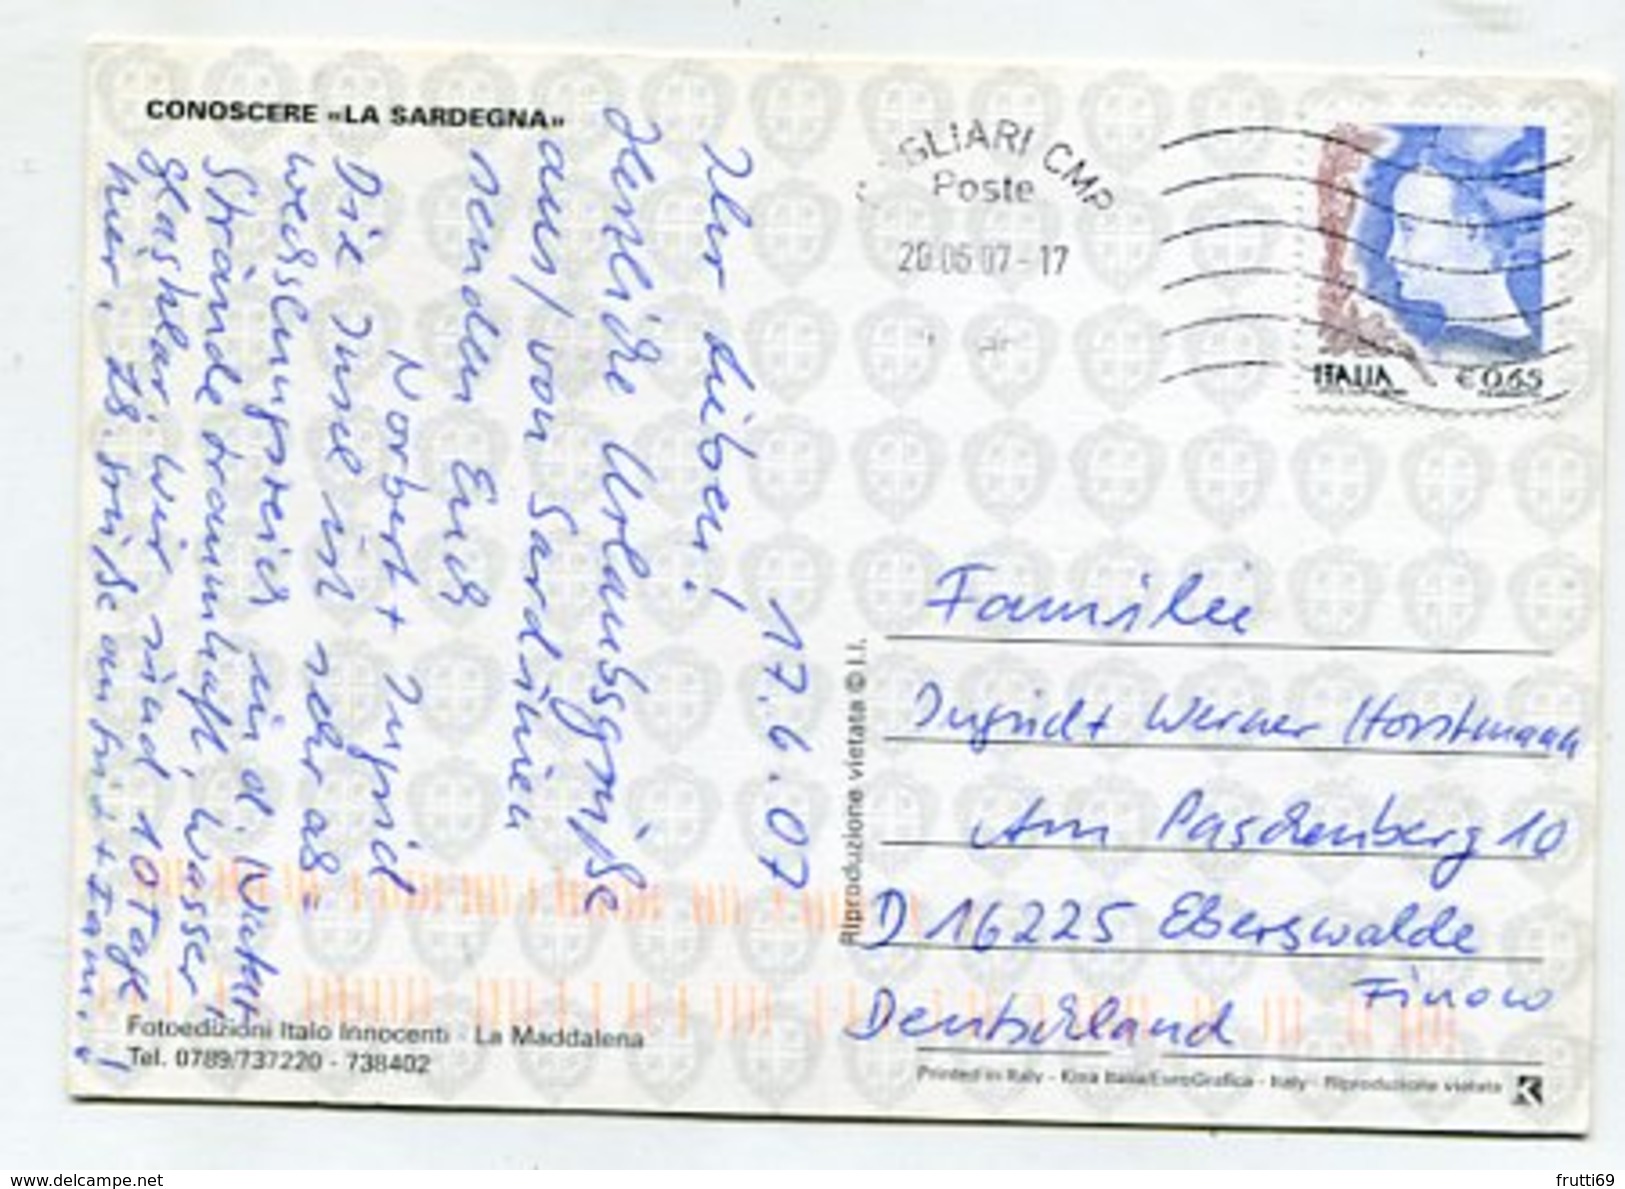 CONOSCERE «LA SARDEGNA»
17.6.07
Ihr Lieben!
Herzliche Urlaubsgrüße
aus/von Sardinien
senden Euch
Norbert + Ingrid
Die Insel ist sehr ab=
wechslungsreich in d. Natur,
Strände traumhaft, Wasser
glasklar. Wir sind 10 Tage
hier.
GLIARI CMP
Poste
20.06.07-17
ITALIA € 0,65
Riproduzione vietata © I.I.
Familie
Ingrid + Werner Horstmann
Am Paschenberg 10
D 16225 Eberswalde
Finow
Deutschland
Fotoedizioni Italo Innocenti - La Maddalena
Tel. 0789/737220 - 738402
Printed in Italy - Kina Italia/EuroGrafica - Italy - Riproduzione vietata
www.delcampe.net
frutti69